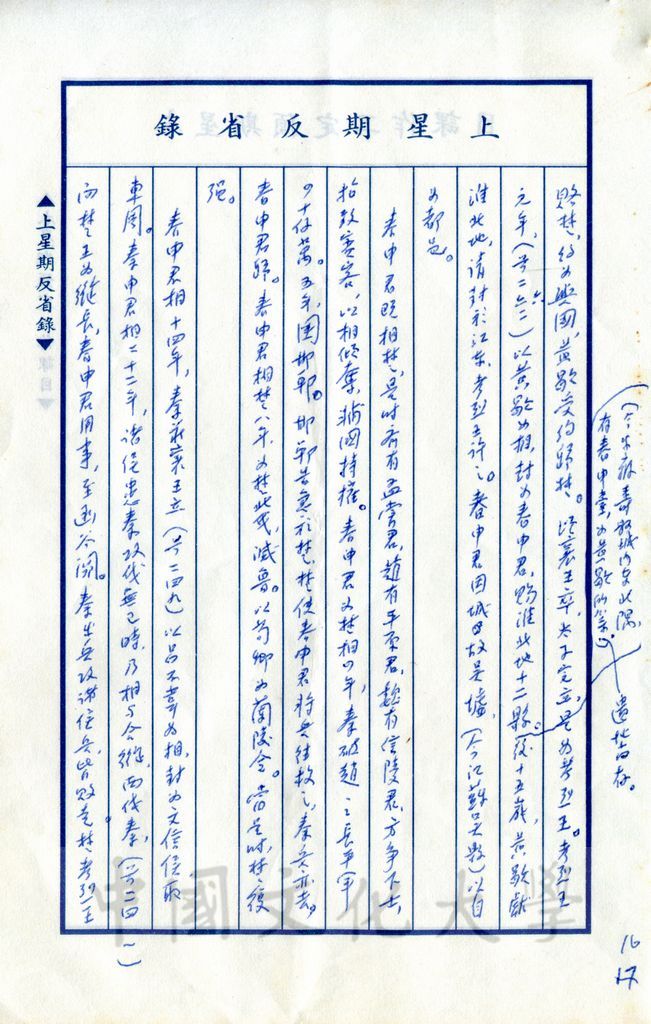 上星期反省錄
賂楚，約為與國，黃歇受約歸楚。頃襄王卒，太子完立，是為考烈王。考烈王
元年，（前二六二）以黃歇為相，封為春申君，賜淮北地十二縣。後十五歲，黃歇獻
淮北地，請封於江東，考烈王許之。春申君因城故吳墟，（今江蘇吳縣）以自
為都邑。
春申君既相楚，是時齊有孟嘗君，趙有平原君，魏有信陵君，方爭下士，
招致賓客，以相傾奪，輔國持權。春申君為楚相四年，秦破趙之長平軍
四十餘萬。五年，圍邯鄲。邯鄲告急於楚，楚使春申君將兵往救之，秦兵亦去。
春申君歸。春申君相楚八年，為楚北伐，滅魯。以荀卿為蘭陵令。當是時，楚復
強。
春申君相十四年，秦莊襄王立（前二四九）以呂不韋為相，封為文信侯取
東周。春申君相二十二年，諸侯患秦攻伐無已時，乃相與合縱，西伐秦，（前二四一）
而楚王為縱長，春申君用事，至函谷關。秦出兵攻諸侯兵，皆敗走。楚考烈王
（今安徽壽縣城內西北隅，
有春申臺，為黃歇所築。）
遺址尚存。
▲上星期反省錄▼
16
17
中國文化大學